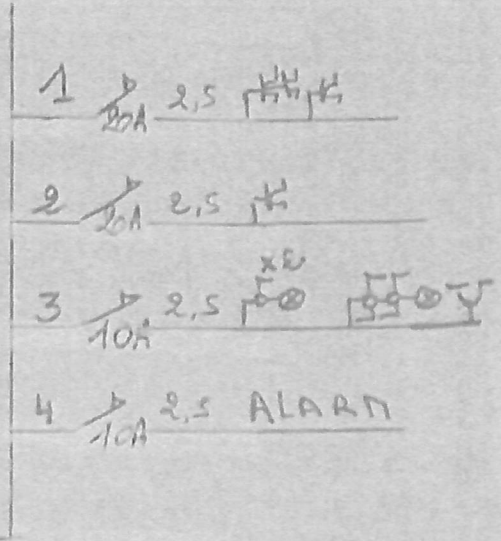 1 20A 2,5
2 20A 2,5
x2
3 10A 2,5
4 10A 2,5 ALARM